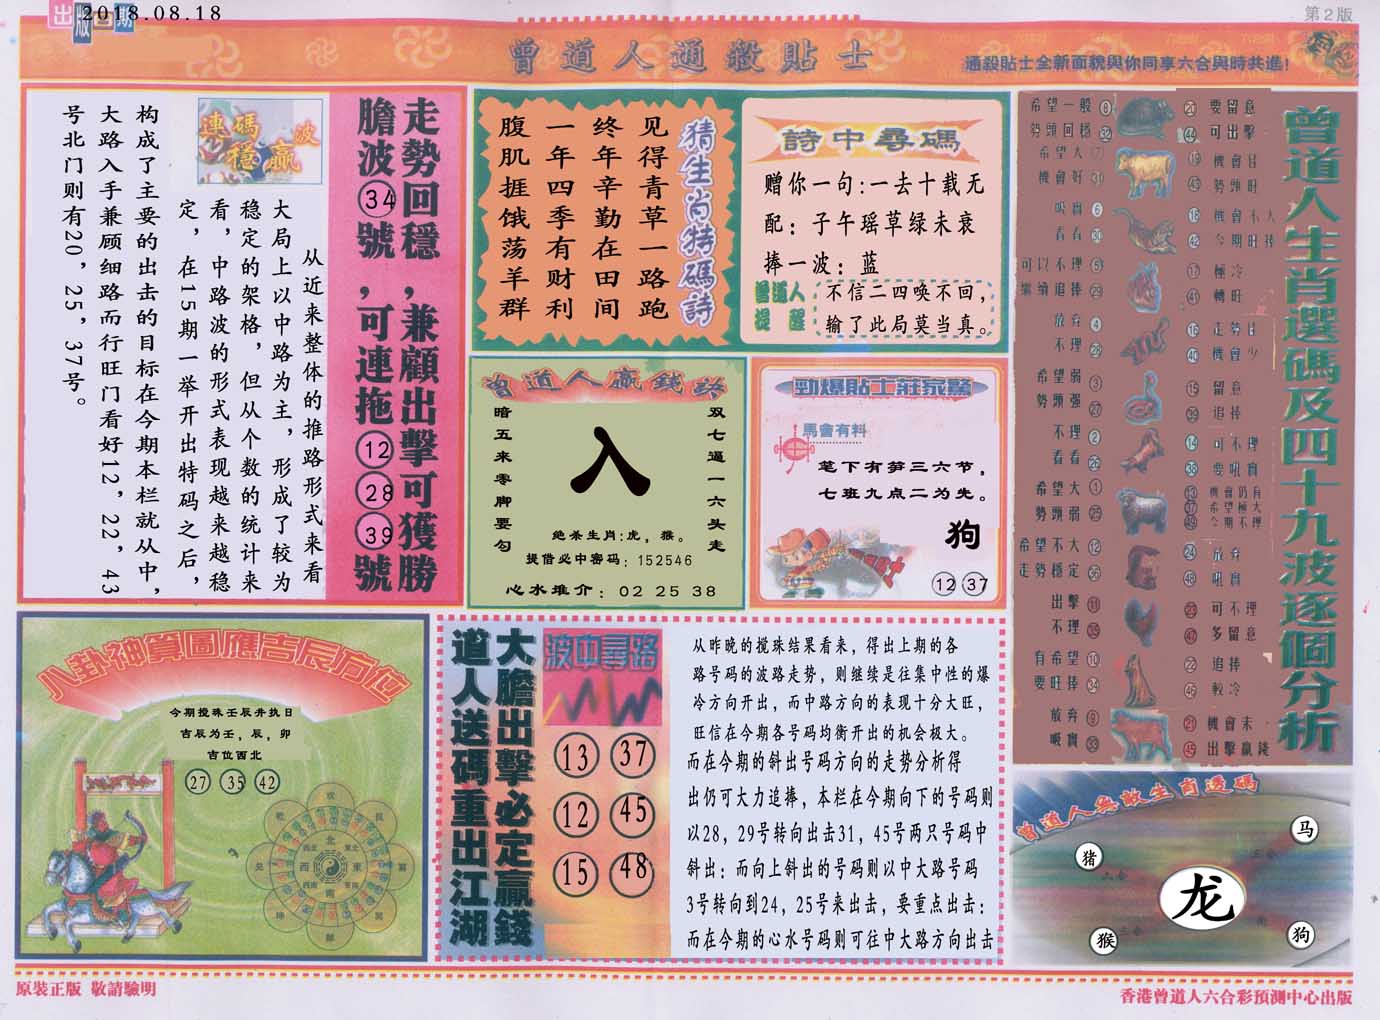 出版日期
2018.08.18
第2版
曾道人通殺貼士
通殺貼士全新面貌與你同享六合與時共進!
走勢回穩,兼顧出擊可獲勝
膽波34號,可連拖12 28 39號
連碼波
穩贏
从近来整体的推路形式来看
大局上以中路为主，形成了较为
稳定的架格，但从个数的统计来
看，中路波的形式表现越来越稳
定，在15期一举开出特码之后，
构成了主要的出击的目标在今期本栏就从中，
大路入手兼顾细路而行旺门看好12，22，43
号北门则有20，25，37号。
猜生肖特碼詩
见得青草一路跑
终年辛勤在田间
一年四季有财利
腹肌捱饿荡羊群
詩中尋碼
赠你一句:一去十载无
配：子午瑶草绿未衰
捧一波：蓝
曾道人
提醒
不信二四唤不回，
输了此局莫当真。
曾道人贏錢詩
双七逼一六头走
入
暗五来零脚要勾
绝杀生肖:虎，猴。
提借必中密码：152546
心水堆介：02 25 38
勁爆貼士莊家驚
馬會有料
笔下有笋三六节，
七班九点二为先。
狗
12 37
曾道人生肖選碼及四十九波逐個分析
希望一般 8
勢頭回穩 32
20 要留意
44 可出擊
希望大
機會好
19
43 勢頭旺
吸實 6
看看 30
18 機會不大
42 今期旺捧
可以不理 5
繼續追捧 29
17 極冷
41 轉旺
放弃 4
不理
16
40 機會少
希望弱 3
勢頭强 27
15 留意
39 追捧
不理 2
看看 26
14 可不理
38 要吼實
希望大 1
勢頭弱 25
13 機會仍有
37 希望極大
49 今期不理
希望不大 12
走勢穩定 36
24 放弃
48 吼實
出擊 11
不理 35
23 可不理
47 多留意
有希望 10
要旺捧 34
22 追捧
46 較冷
放弃 9
吸實 33
21 機會未
45 出擊贏錢
八卦神算圖應吉辰方位
今期搅珠壬辰井执日
吉辰为壬，辰，卯
吉位西北
27 35 42
大膽出擊必定贏錢
道人送碼重出江湖
波中尋路
13 37
12 45
15 48
从昨晚的搅珠结果看来，得出上期的各
路号码的波路走势，则继续是往集中性的爆
冷方向开出，而中路方向的表现十分大旺，
旺信在今期各号码均衡开出的机会极大。
而在今期的斜出号码方向的走势分析得
出仍可大力追捧，本栏在今期向下的号码则
以28，29号转向出击31，45号两只号码中
斜出：而向上斜出的号码则以中大路号码
3号转向到24，25号来出击，要重点出击：
而在今期的心水号码则可往中大路方向出击
曾道人無敵生肖透碼
马
猪
龙
猴
狗
原裝正版 敬請驗明
香港曾道人六合彩預測中心出版